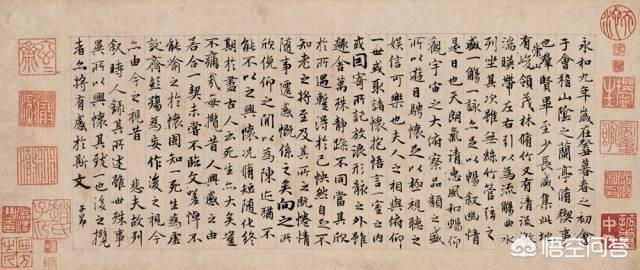 永和九年歲在癸丑暮春之初會
于會稽山陰之蘭亭脩禊事
也群賢畢至少長咸集此地
有崇山峻領茂林脩竹又有清流激
湍暎帶左右引以為流觴曲水
列坐其次雖無絲竹管弦之
盛一觴一詠亦足以暢敘幽情
是日也天朗氣清惠風和暢仰
觀宇宙之大俯察品類之盛
所以遊目騁懷足以極視聽之
娛信可樂也夫人之相與俯仰
一世或取諸懷抱悟言一室之內
或因寄所託放浪形骸之外雖
趣舍萬殊靜躁不同當其欣
於所遇蹔得於己怏然自足不
知老之將至及其所之既惓情
隨事遷感慨係之矣向之所
欣俛仰之閒以為陳迹猶不
能不以之興懷況脩短隨化終
期於盡古人云死生亦大矣豈
不痛哉每攬昔人興感之由
若合一契未嘗不臨文嗟悼不
能喻之於懷固知一死生為虛
誕齊彭殤為妄作後之視今
亦由今之視昔 悲夫故列
敘時人錄其所述雖世殊事
異所以興懷其致一也後之攬
者亦將有感於斯文 子昂
悟空问答